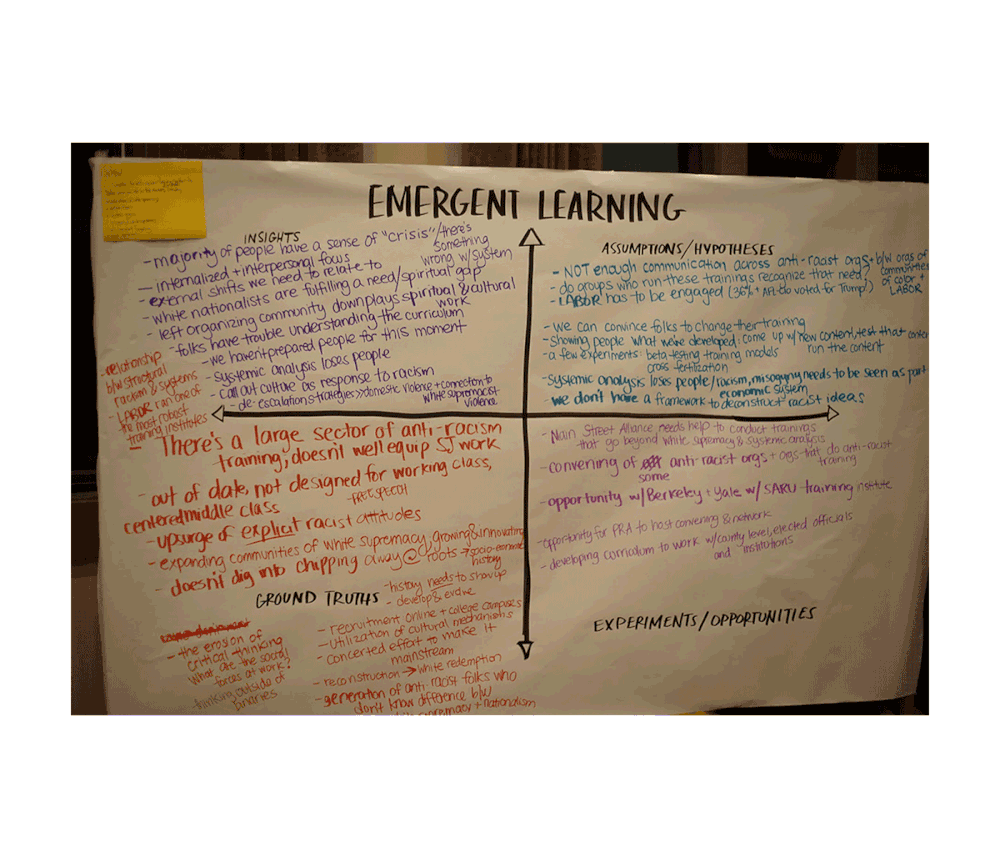 EMERGENT LEARNING
INSIGHTS
- majority of people have a sense of "crisis"/there's
something
wrong w/ system
- internalized + interpersonal focus
- external shifts we need to relate to
- white nationalists are fulfilling a need/spiritual gap
- left organizing community downplays spiritual & cultural
work
- folks have trouble understanding the curriculum
- we haven't prepared people for this moment
- systemic analysis loses people
- call out culture as response to racism
- de-escalation strategies >> domestic violence + connection to
white supremacist
violence
- relationship
b/w structural
racism & systems
- ran one of
the most robust
training institutes
ASSUMPTIONS/HYPOTHESES
- NOT enough communication across anti-racist orgs + b/w orgs of
communities
of color +
LABOR
- do groups who run these trainings recognize that need?
- LABOR has to be engaged (36% + voted for Trump!)
- we can convince folks to change their training
- showing people what we've developed: come up w/ new content, test that
run the content
- a few experiments: beta-testing training models
cross fertilization
- systemic analysis loses people/racism, misogyny needs to be seen as part
economic system
- we don't have a framework to deconstruct racist ideas
- There's a large sector of anti-racism
training, doesn't well equip SJ work
- out of date, not designed for working class,
centered middle class
- upsurge of explicit racist attitudes
- expanding communities of white supremacy, growing & innovating
- doesn't dig into chipping away @ roots → socio-economic
history
- history needs to show up
- develop & evolve
GROUND TRUTHS
- recruitment online + college campuses
- utilization of cultural mechanisms
- concerted effort to make it
mainstream
- reconstruction → white redemption
- generation of anti-racist folks who
don't know difference b/w
supremacy + nationalism
- the erosion of
critical thinking
What are the social
forces at work?
thinking outside of
binaries
- Main Street Alliance needs help to conduct trainings
that go beyond white supremacy & systemic analysis
- convening of anti-racist orgs + orgs that do anti-racist
some
training
- opportunity w/ Berkeley + Yale w/ SARU training institute
- opportunity for PRA to host convening & network
- developing curriculum to work w/ county level, elected officials
and institutions
EXPERIMENTS/OPPORTUNITIES